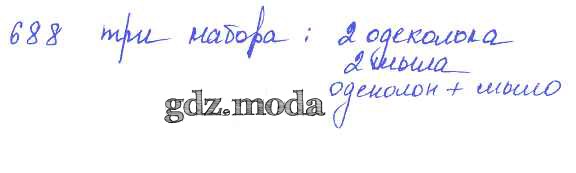 688 три набора : 2 одеколона
2 мыла
одеколон + мыло
gdz.moda